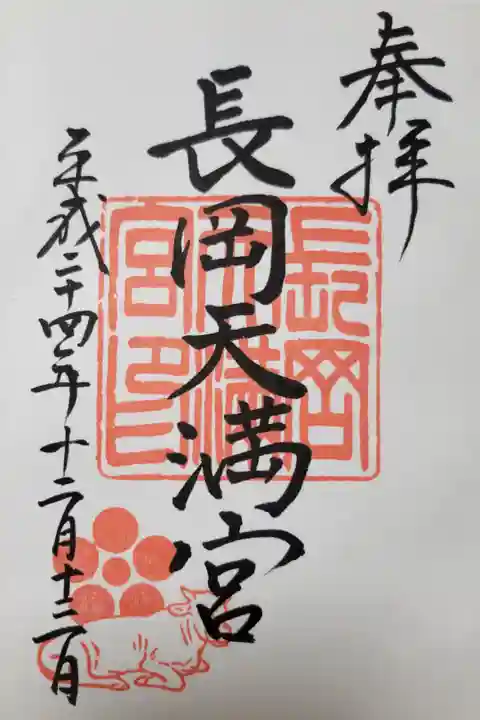 奉拝
長岡天満宮
平成二十四年十二月十三日
長岡天満宮印